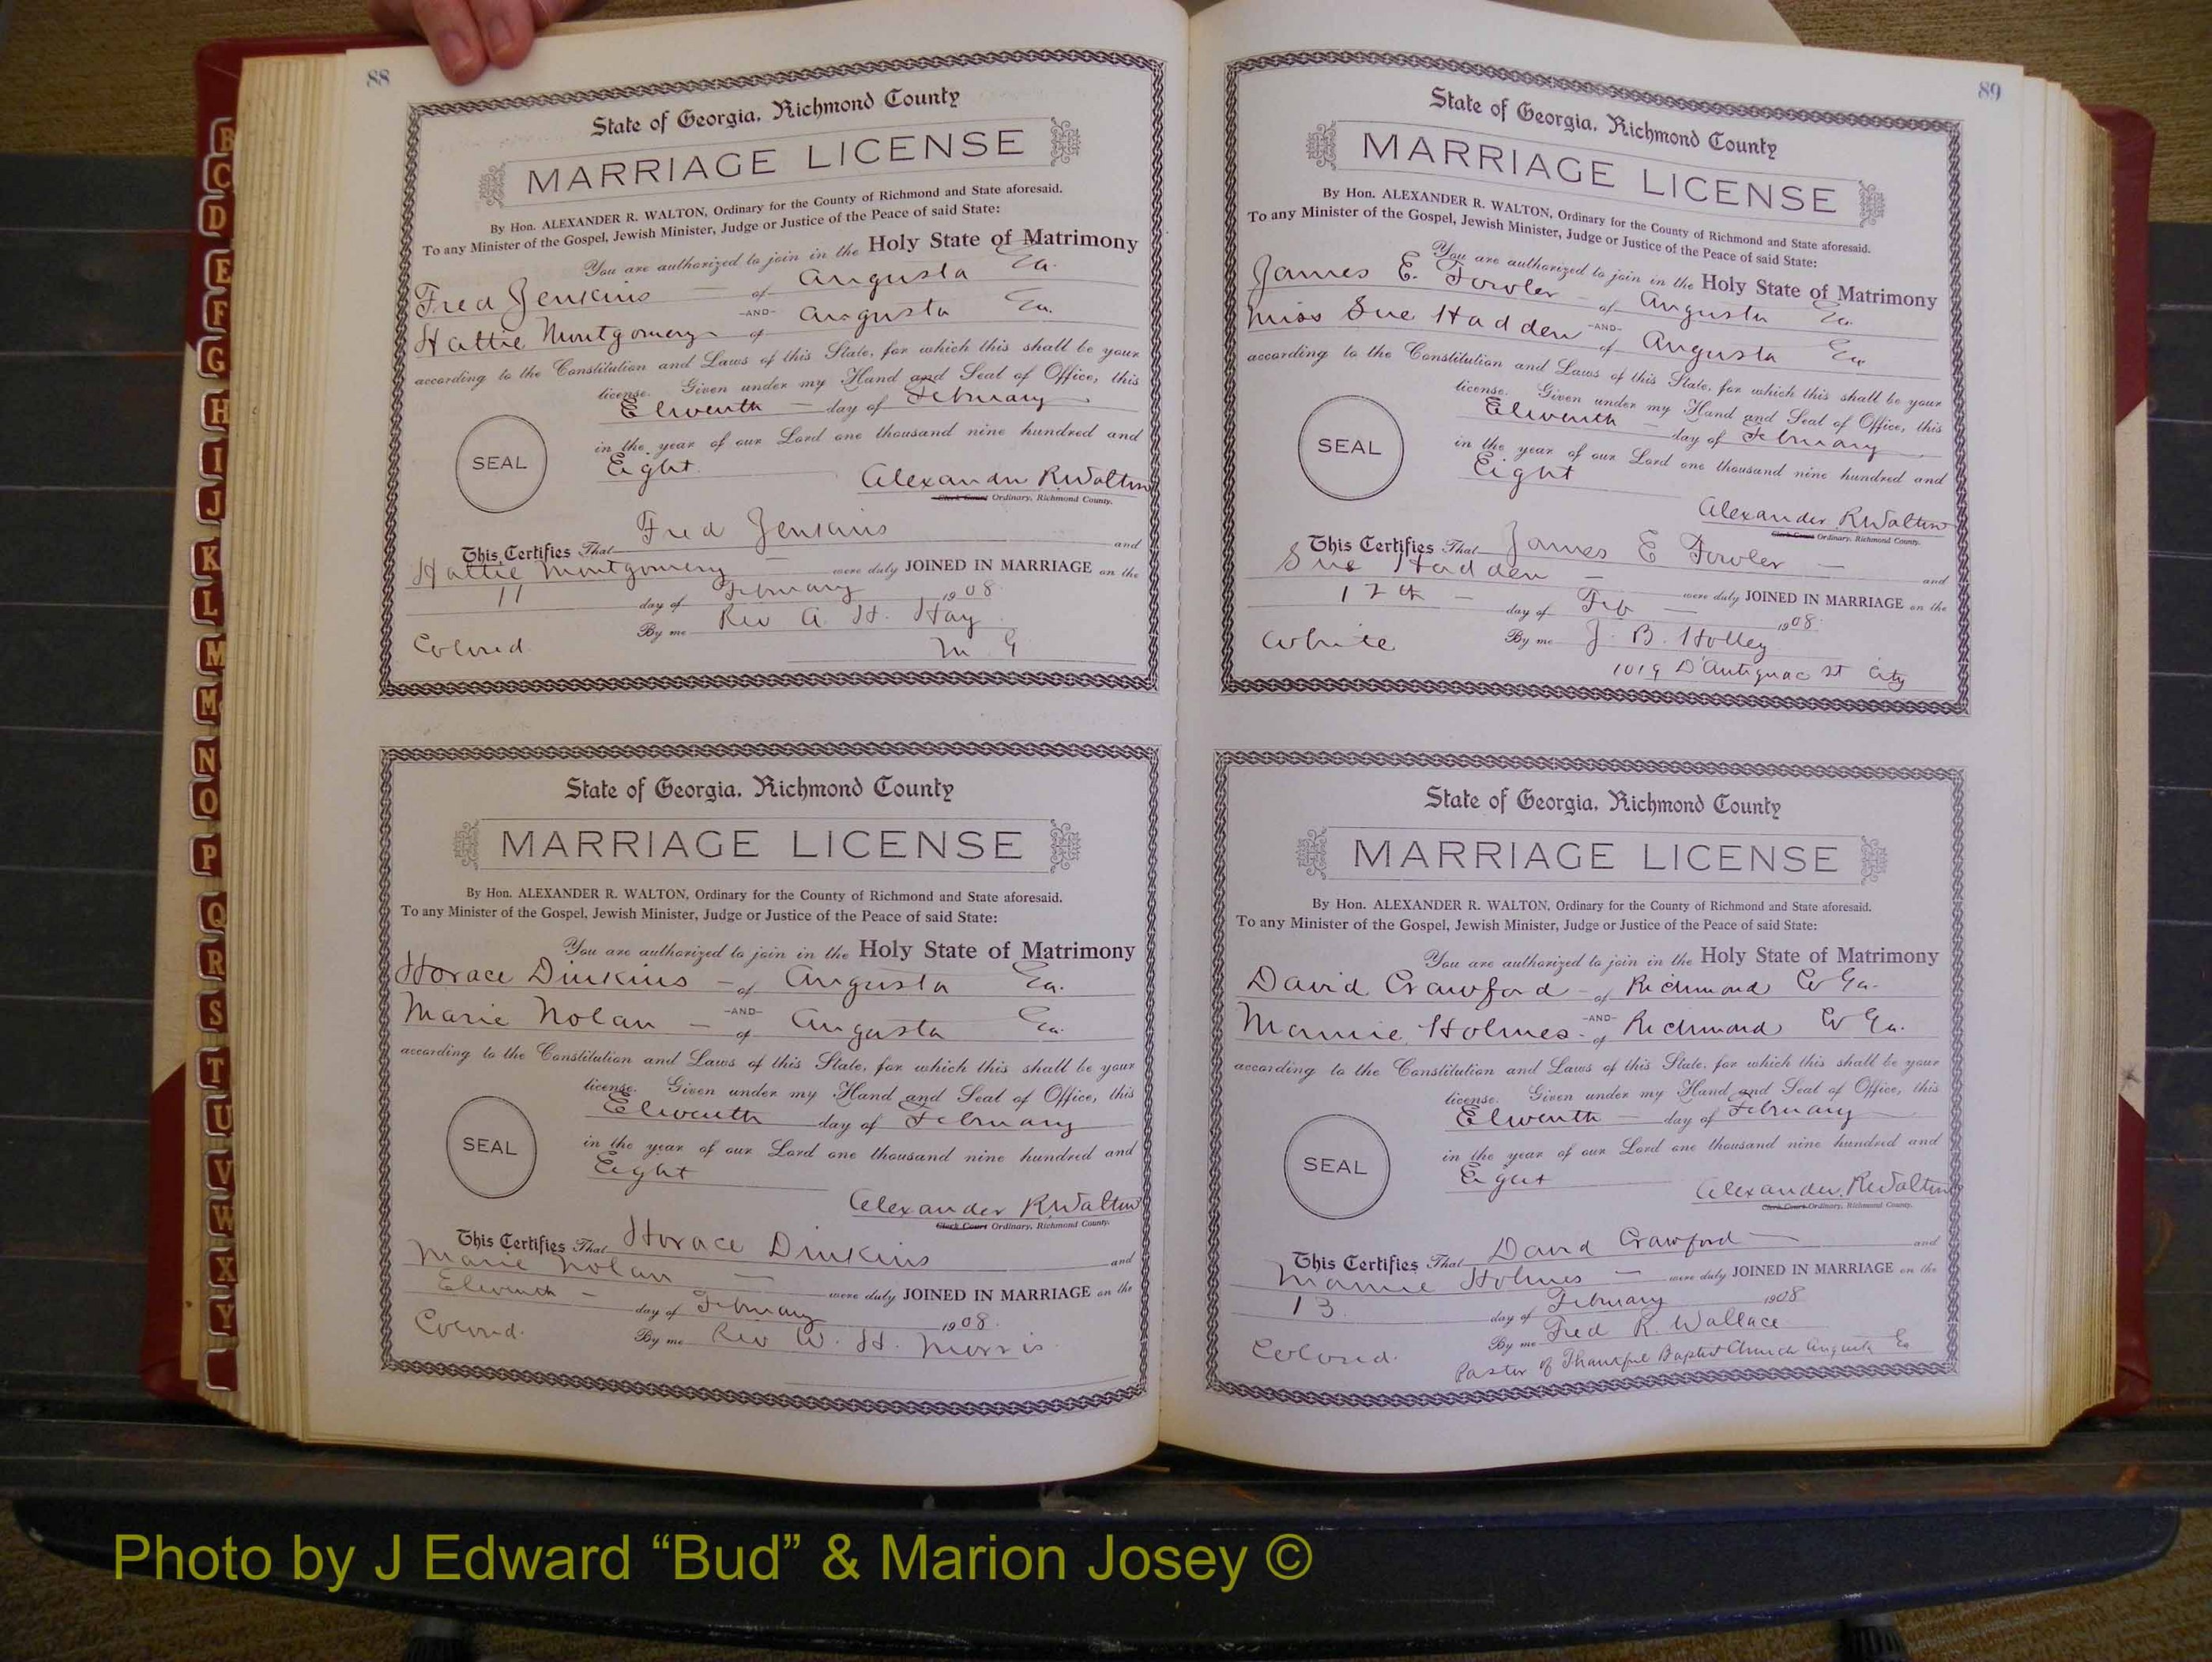 88
State of Georgia, Richmond County
MARRIAGE LICENSE
By Hon. ALEXANDER R. WALTON, Ordinary for the County of Richmond and State aforesaid.
To any Minister of the Gospel, Jewish Minister, Judge or Justice of the Peace of said State:
You are authorized to join in the Holy State of Matrimony
Fred Jenkins — of Augusta Ga.
-AND-
Hattie Montgomery of Augusta Ga.
according to the Constitution and Laws of this State, for which this shall be your
license. Given under my Hand and Seal of Office, this
Eleventh — day of February
in the year of our Lord one thousand nine hundred and
SEAL
Eight
Alexander R. Walton
Clerk Court Ordinary, Richmond County.
This Certifies That Fred Jenkins and
Hattie Montgomery — were duly JOINED IN MARRIAGE on the
11 day of February 1908
By me Rev A. H. Hay
Colored M. G
State of Georgia, Richmond County
MARRIAGE LICENSE
By Hon. ALEXANDER R. WALTON, Ordinary for the County of Richmond and State aforesaid.
To any Minister of the Gospel, Jewish Minister, Judge or Justice of the Peace of said State:
You are authorized to join in the Holy State of Matrimony
Horace Dinkins — of Augusta Ga.
-AND-
Marie Nolan — of Augusta Ga.
according to the Constitution and Laws of this State, for which this shall be your
license. Given under my Hand and Seal of Office, this
Eleventh day of February
in the year of our Lord one thousand nine hundred and
SEAL
Eight
Alexander R. Walton
Clerk Court Ordinary, Richmond County.
This Certifies That Horace Dinkins and
Marie Nolan — were duly JOINED IN MARRIAGE on the
Eleventh — day of February 1908.
Colored. By me Rev W. H. Morris
89
State of Georgia, Richmond County
MARRIAGE LICENSE
By Hon. ALEXANDER R. WALTON, Ordinary for the County of Richmond and State aforesaid.
To any Minister of the Gospel, Jewish Minister, Judge or Justice of the Peace of said State:
You are authorized to join in the Holy State of Matrimony
James E. Fowler — of Augusta Ga.
-AND-
Miss Sue Hadden of Augusta Ga
according to the Constitution and Laws of this State, for which this shall be your
license. Given under my Hand and Seal of Office, this
Eleventh — day of February
in the year of our Lord one thousand nine hundred and
SEAL
Eight
Alexander R. Walton
Clerk Court Ordinary, Richmond County.
This Certifies That James E Fowler — and
Sue Hadden — were duly JOINED IN MARRIAGE on the
12th — day of Feb — 1908.
White By me J. B. Holley
1019 D'Antignac St City
State of Georgia, Richmond County
MARRIAGE LICENSE
By Hon. ALEXANDER R. WALTON, Ordinary for the County of Richmond and State aforesaid.
To any Minister of the Gospel, Jewish Minister, Judge or Justice of the Peace of said State:
You are authorized to join in the Holy State of Matrimony
David Crawford — of Richmond Co Ga.
-AND-
Mamie Holmes. of Richmond Co Ga.
according to the Constitution and Laws of this State, for which this shall be your
license. Given under my Hand and Seal of Office, this
Eleventh — day of February
in the year of our Lord one thousand nine hundred and
SEAL
Eight
Alexander R. Walton
Clerk Court Ordinary, Richmond County.
This Certifies That David Crawford — and
Mamie Holmes — were duly JOINED IN MARRIAGE on the
13. day of February 1908
By me Fred R. Wallace
Colored. Pastor of Thankful Baptist Church Augusta Ga
B
C
D
E
F
G
H
I
J
K
L
M
Mc
N
O
P
Q
R
S
T
U
V
W
X
Y
Photo by J Edward “Bud” & Marion Josey ©